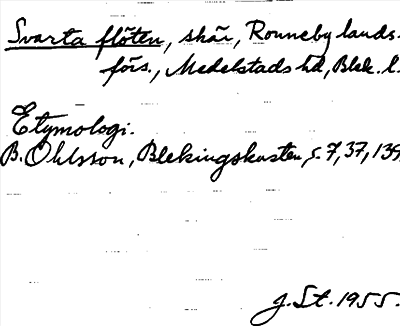 Svarta flöten, skär, Ronneby lands-
förs., Medelstads hd, Blek. l.
Etymologi.
B. Ohlsson, Blekingskusten, s. 7, 37, 139
J. St. 1955.